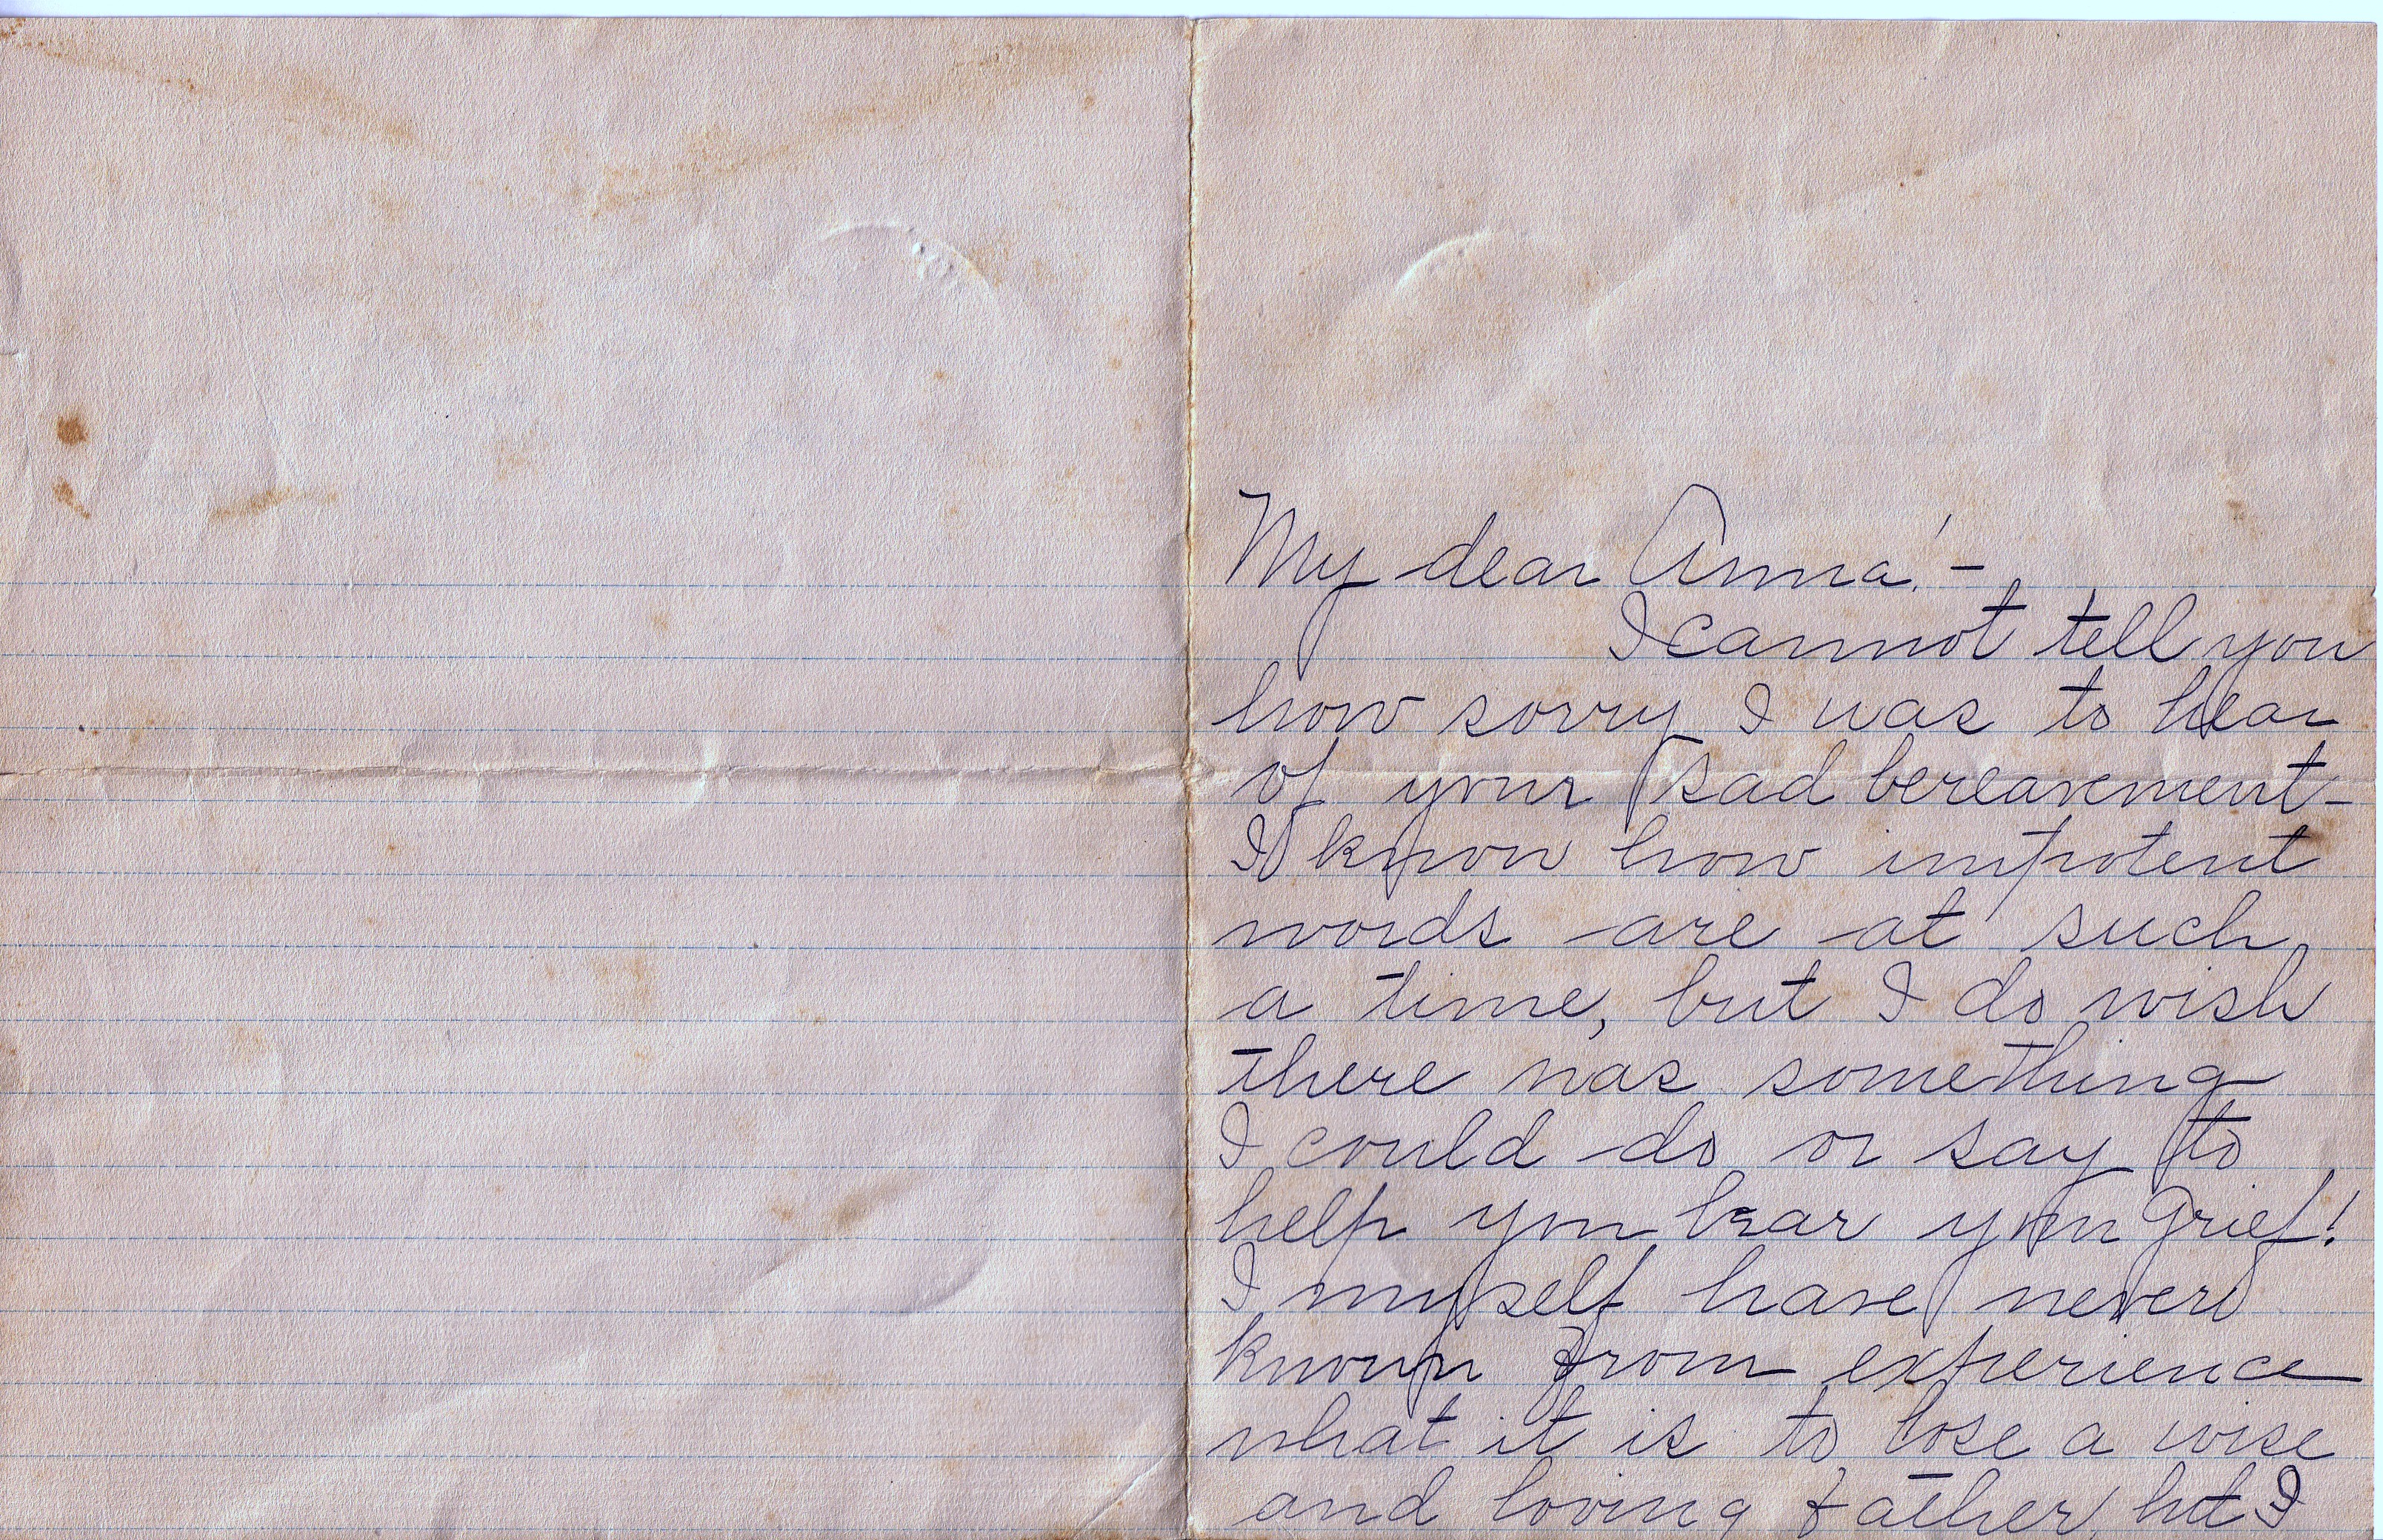 My dear Anna! -
I cannot tell you
how sorry I was to hear
of your sad bereavement -
I know how impotent
words are at such
a time, but I do wish
there was something
I could do or say to
help you bear your grief!
I myself have never
known from experience
what it is to lose a wise
and loving father, but I